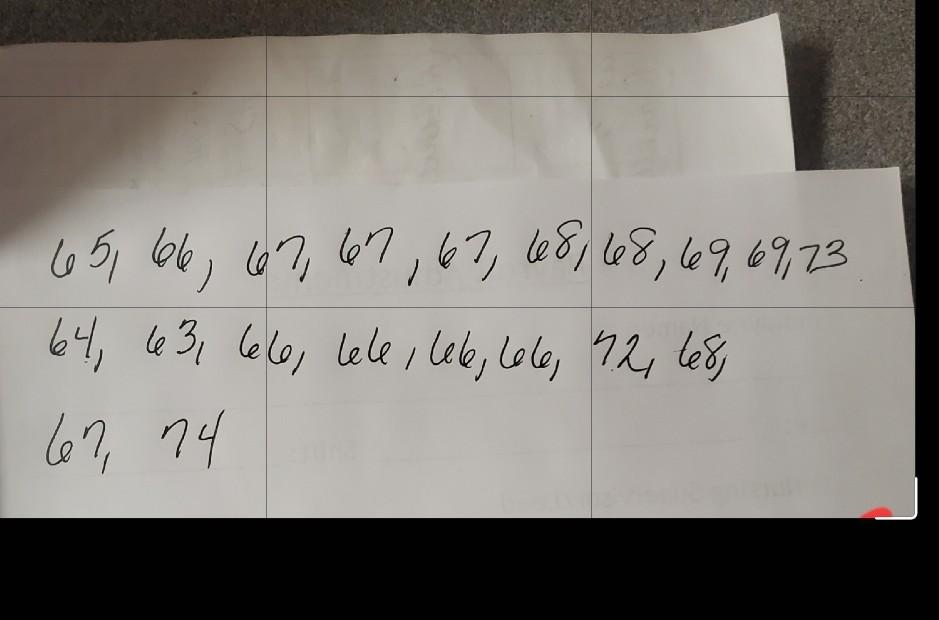 65, 66, 67, 67, 67, 68, 68, 69, 69, 73
64, 63, 66, 66, 66, 66, 72, 68,
67, 74